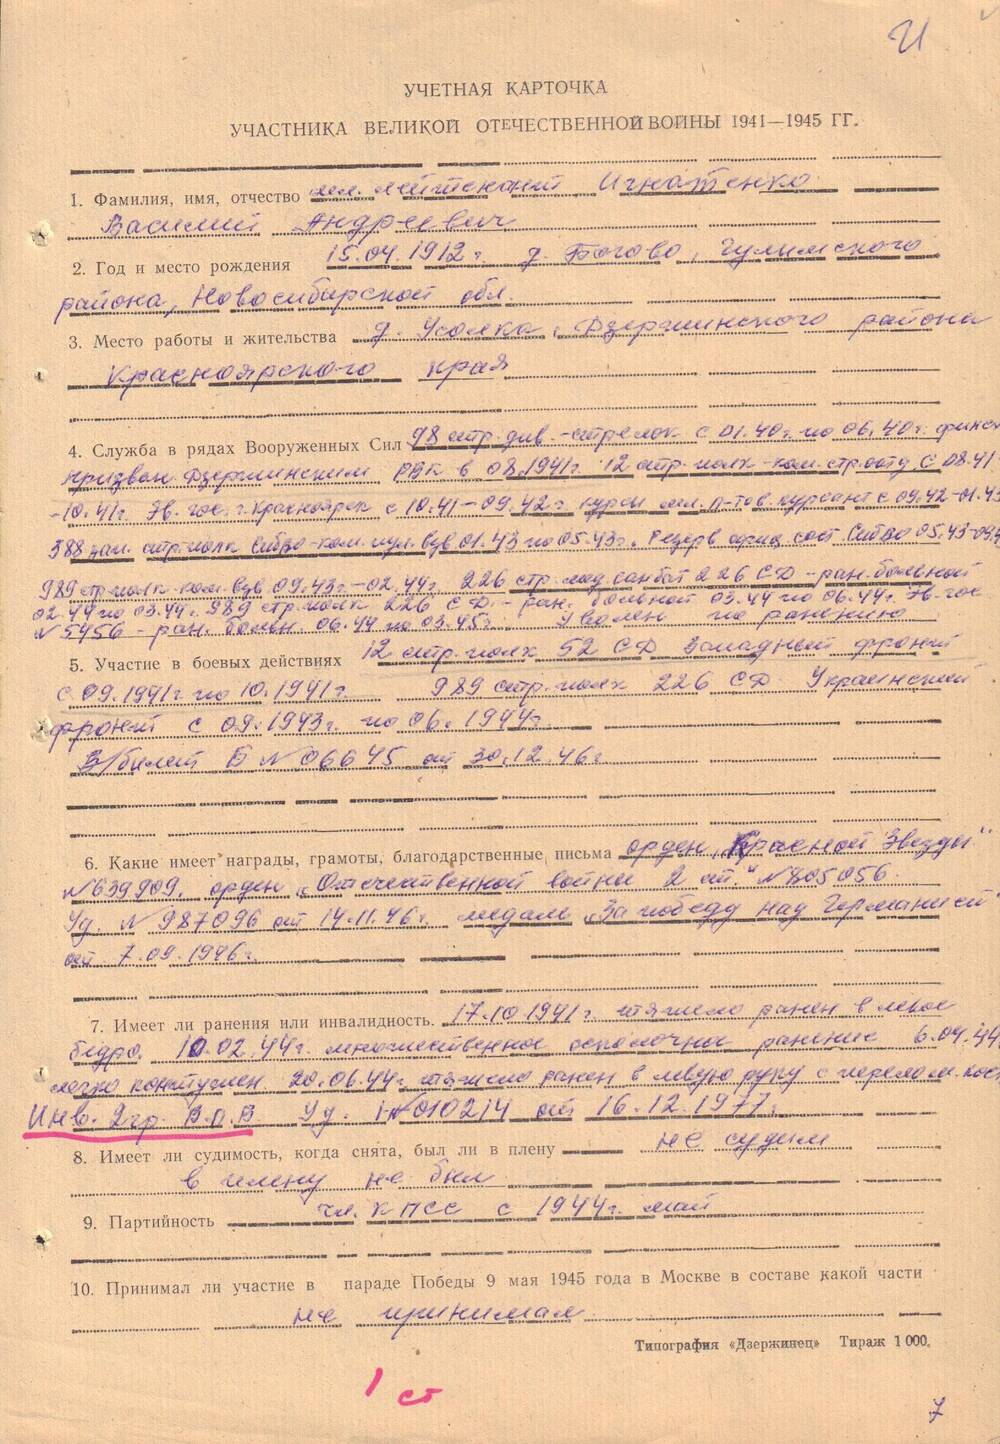 И
УЧЕТНАЯ КАРТОЧКА
УЧАСТНИКА ВЕЛИКОЙ ОТЕЧЕСТВЕННОЙ ВОЙНЫ 1941—1945 ГГ.
1. Фамилия, имя, отчество мл. лейтенант Игнатенко
Василий Андреевич
2. Год и место рождения 15.04.1912 г. д. Богово, Чулымского
района, Новосибирской обл.
3. Место работы и жительства д. Усолка, Дзержинского района
Красноярского края
4. Служба в рядах Вооруженных Сил 98 стр. див. - стрелок с 01.40 г. по 06.40 г. финск
призван Дзержинским РВК в 08.1941 г. 12 стр. полк - ком. стр. отд с 08.41-
-10.41 г. Эв. гос. г. Красноярск с 10.41-09.42 г. курсы мл. л-тов. курсант с 09.42-01.43
388 зап. стр. полк СибВО - ком. пул. взв 01.43 по 05.43 г. Резерв офиц. сост. СибВО 05.43-09.4
989 стр. полк - ком. взв 09.43 г. - 02.44 г. 226 стр. мед. санбат 226 СД - ран. больной
02.44 по 03.44 г. 989 стр. полк 226 СД. - ран. больной 03.44 по 06.44 г. Эв. гос
№ 5456 - ран. больн. 06.44 по 03.45 г. Уволен по ранению
5. Участие в боевых действиях 12 стр. полк 52 СД Западный фронт
с 09.1941 г. по 10.1941 г. 989 стр. полк 226 СД Украинский
фронт с 09.1943 г. по 06.1944 г.
В/билет Б № 06645 от 30.12.46 г.
6. Какие имеет награды, грамоты, благодарственные письма орден „Красной Звезды"
№ 639909. орден „Отечественной войны 2 ст." № 805056.
Уд. № 987096 от 14.11.46 г. медаль „За победу над Германией
от 7.09.1946 г.
7. Имеет ли ранения или инвалидность. 17.10.1941 г. тяжело ранен в левое
бедро. 10.02.44 г. множественное осколочны ранение 6.04.44
легко контужен. 20.06.44 г. тяжело ранен в левую руку с перелом. кост
Инв. 2 гр. В.О.В Уд. № 010214 от 16.12.1977 г.
8. Имеет ли судимость, когда снята, был ли в плену не судим
в плену не был
9. Партийность чл. КПСС с 1944 г. май
10. Принимал ли участие в параде Победы 9 мая 1945 года в Москве в составе какой части
не принимал
Типография «Дзержинец» Тираж 1 000.
1 ст
7